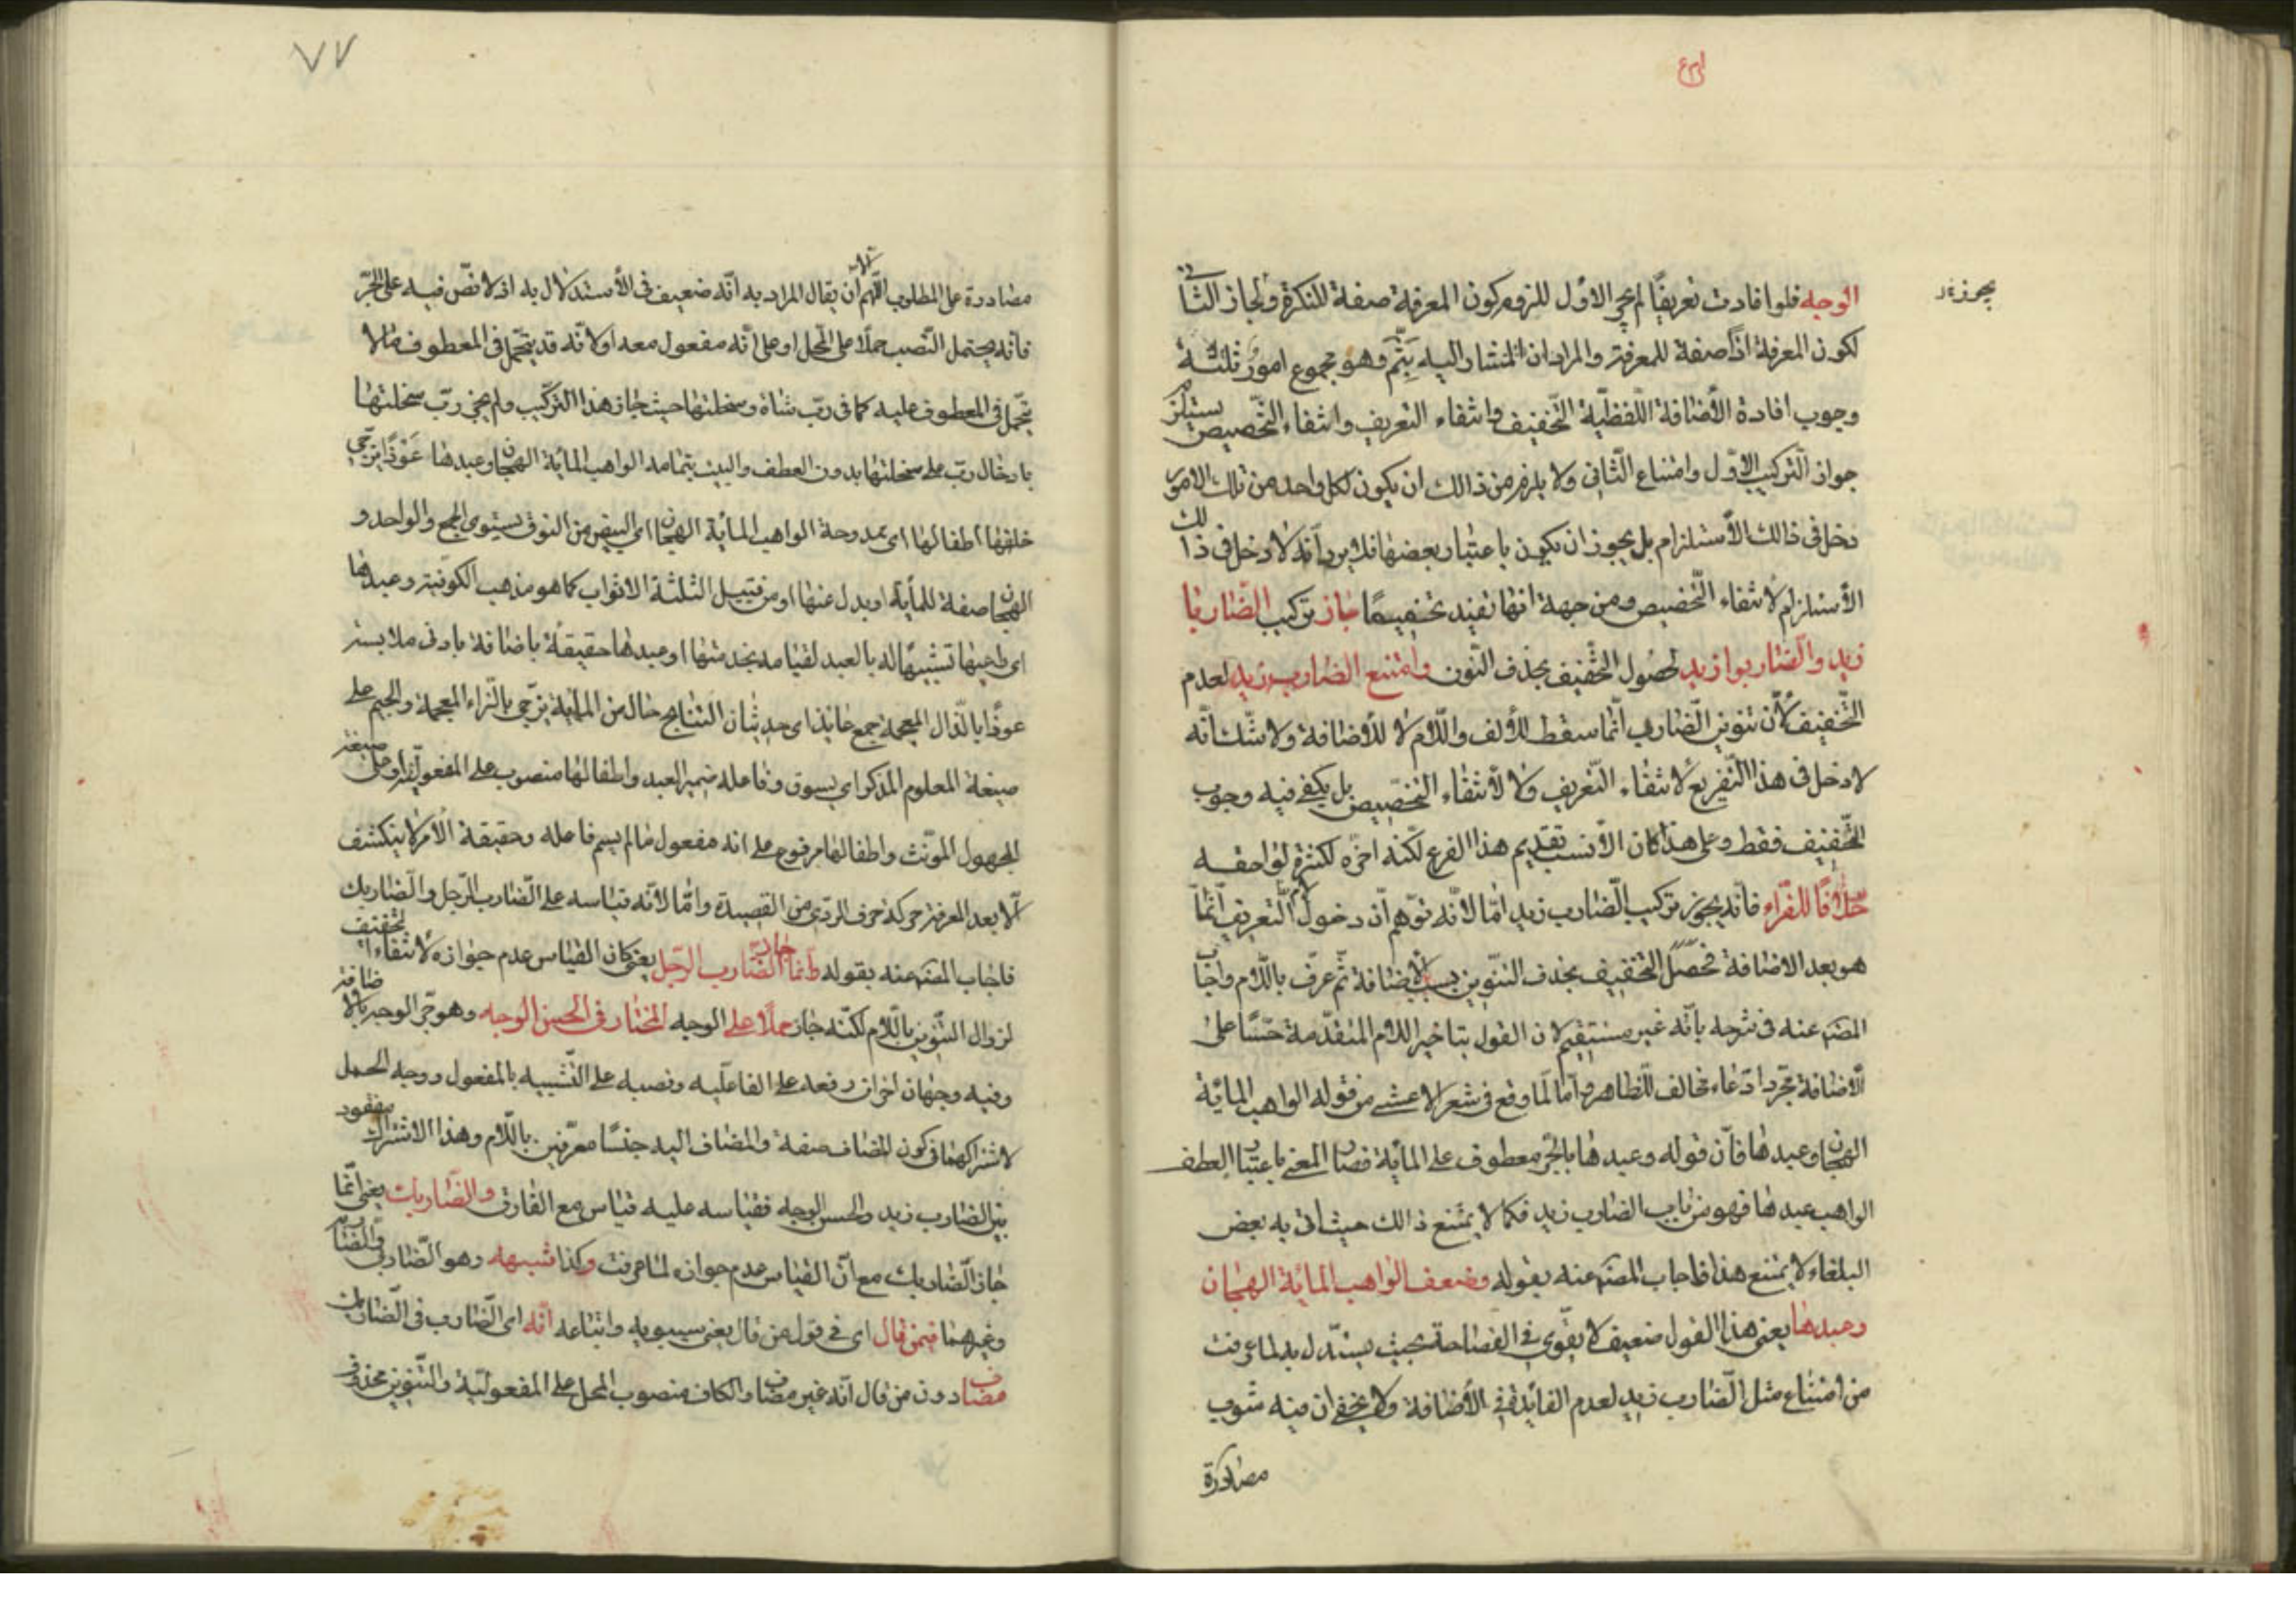 الوجه فلوا فادت تعريفًا لم يجز الاول للزوم كون المعرفة صفة للنكرة ولجاز الثانى
يجوز زيد
لكون المعرفة اذًا صفة للمعرفة والمراد ان المشار اليه بثَمَّ وهو مجموع امور ثلثة
وجوب افادة الأضافة اللّفظيّة التّخفيف وانتفاء التعريف وانتفاء التّخصيص يستلزم
جواز التركيب الاوّل وامتناع الثّانى ولا يلزم من ذالك ان يكون لكل واحد من تلك الامور
دخل فى ذالك الأستلزام بل يجوز ان يكون باعتبار بعضها فلا يرد انّه لا دخل فى ذالك
الأستلزام لأنتفاء التّخصيص ومن جهة انها تفيد تخفيفًا جاز تركيب الضّاربا
زيد والضّاربوا زيد لحصول التّخفيف بحذف النّون وامتنع الضارب زيد لعدم
التّخفيف لأنّ تنوين الضّارب انّما سقط للألف واللّام لا للأضافة ولا شكّ انّه
لا دخل فى هذا التّفريع لأنتفاء التّعريف ولا لأنتفاء التّخصيص بل يكفى فيه وجوب
التّخفيف فقط وعلى هذا كان الأنسب تقديم هذا الفرع لكنّه اخّره لكثرة لواحقه
خلافًا للفرّاء فانّه يجوز تركيب الضّارب زيد امّا لانّه توهّم انّ دخول لام التّعريف انّما
هو بعد الاضافة فحصل التّخفيف بحذف التنّوين بسبب الاضافة ثمّ عرّف باللّام واجاب
المصَ عنه فى شرحه بانّه غير مستقيم لان القول بتاخير اللّام المتقدّمة حسًّا على
الأضافة مجرّد ادّعاء مخالف للظاهر وامّا لما وقع فى شعر الاعشى من قوله الواهب المائة
الهجان وعبدها فانّ قوله وعبدها بالجرّ معطوف على المائة فصار المعنى باعتبار العطف
الواهب عبدها فهو من باب الضارب زيد فكما لا يمتنع ذالك حيث اتى به بعض
البلغاء لا يمتنع هذا فاجاب المصَ عنه بقوله وضعف الواهب المائة الهجان
وعبدها يعنى هذا القول ضعيف لا يقوى فى الفصاحة بحيث يستدّل به لما عرفت
من امتناع مثل الضّارب زيد لعدم الفائدة فى الأضافة ولا يخفى ان فيه شوب
مصادرة
٧٧
مصادرة على المطلوب اللهمّ الّا ان يقال المراد به انّه ضعيف فى الأستدلال به اذ لا نصّ فيه على الجرّ
فانّه يحتمل النّصب حملًا على المحل او على انّه مفعول معه او لانّه قد يتحمّل فى المعطوف ما لا
يتحمّل فى المعطوف عليه كما فى ربّ شاة وسخلتها حيث جاز هذا التركيب ولم يجز ربّ سخلتها
بادخال ربّ على سخلتها بدون العطف والبيت بتمامه الواهب المائة الهجان وعبدها عَوْذًا يزجّى
خلفها اطفالها اى ممدوحة الواهب المائة الهجان اى البيض من النوق يستوى الجمع والواحد و
الهجان صفة للمأية او بدل عنها او من قبيل الثلثة الاثواب كما هو مذهب الكوفيّة وعبدها
اى راعيها تشبيهًا له بالعبد لقيامه بخدمتها او عبدها حقيقة باضافة بادنى ملابسة
عوذًا بالذّال المعجمة جمع عائذ اى حديثات النتاج حال من المأية يزجّى بالزّاء المعجمة والجيم على
صيغة المعلوم المذكر اى يسوق وفاعله ضمير العبد واطفالها منصوب على المفعوليّة او على صيغة
المجهول المؤنّث واطفالها مرفوع على انه مفعول ما لم يسم فاعله وحقيقة الأمر لا ينكشف
الّا بعد المعرفة حركة حرف الردّى من القصيدة وامّا لأنّه قياسه على الضّارب الرّجل والضّاربك
فاجاب المصَ عنه بقوله وانما جاز الضارب الرّجل يعنى كان القياس عدم جوازه لأنتفاء التخفيف
لزوال التنّوين باللّام لكنّه جاز حملًا على الوجه المختار فى الحسن الوجه وهو جرّ الوجه بالاضافة
وفيه وجهان اخران رفعه على الفاعليه ونصبه على التّشبيه بالمفعول ووجه الحمل
لاشتراكهما فى كون المضاف صفة والمضاف اليه جنسًا معرّفين باللّام وهذا الاشتراك مفقود
بين الضّارب زيد والحسن الوجه فقياسه عليه قياس مع الفارق والضّاربك يعنى انّما
جاز الضّاربك مع انّ القياس عدم جوازه لما عرفت وكذا شبهه وهو الضّاربى والضاربه
وغيرهما فيمن قال اى فى قول من قال يعنى سيبويه واتباعه انّه اى الضّارب فى الضّاربك
مضاف دون من قال انّه غير مضاف والكاف منصوب المحل على المفعوليّة والتّنوين محذوف